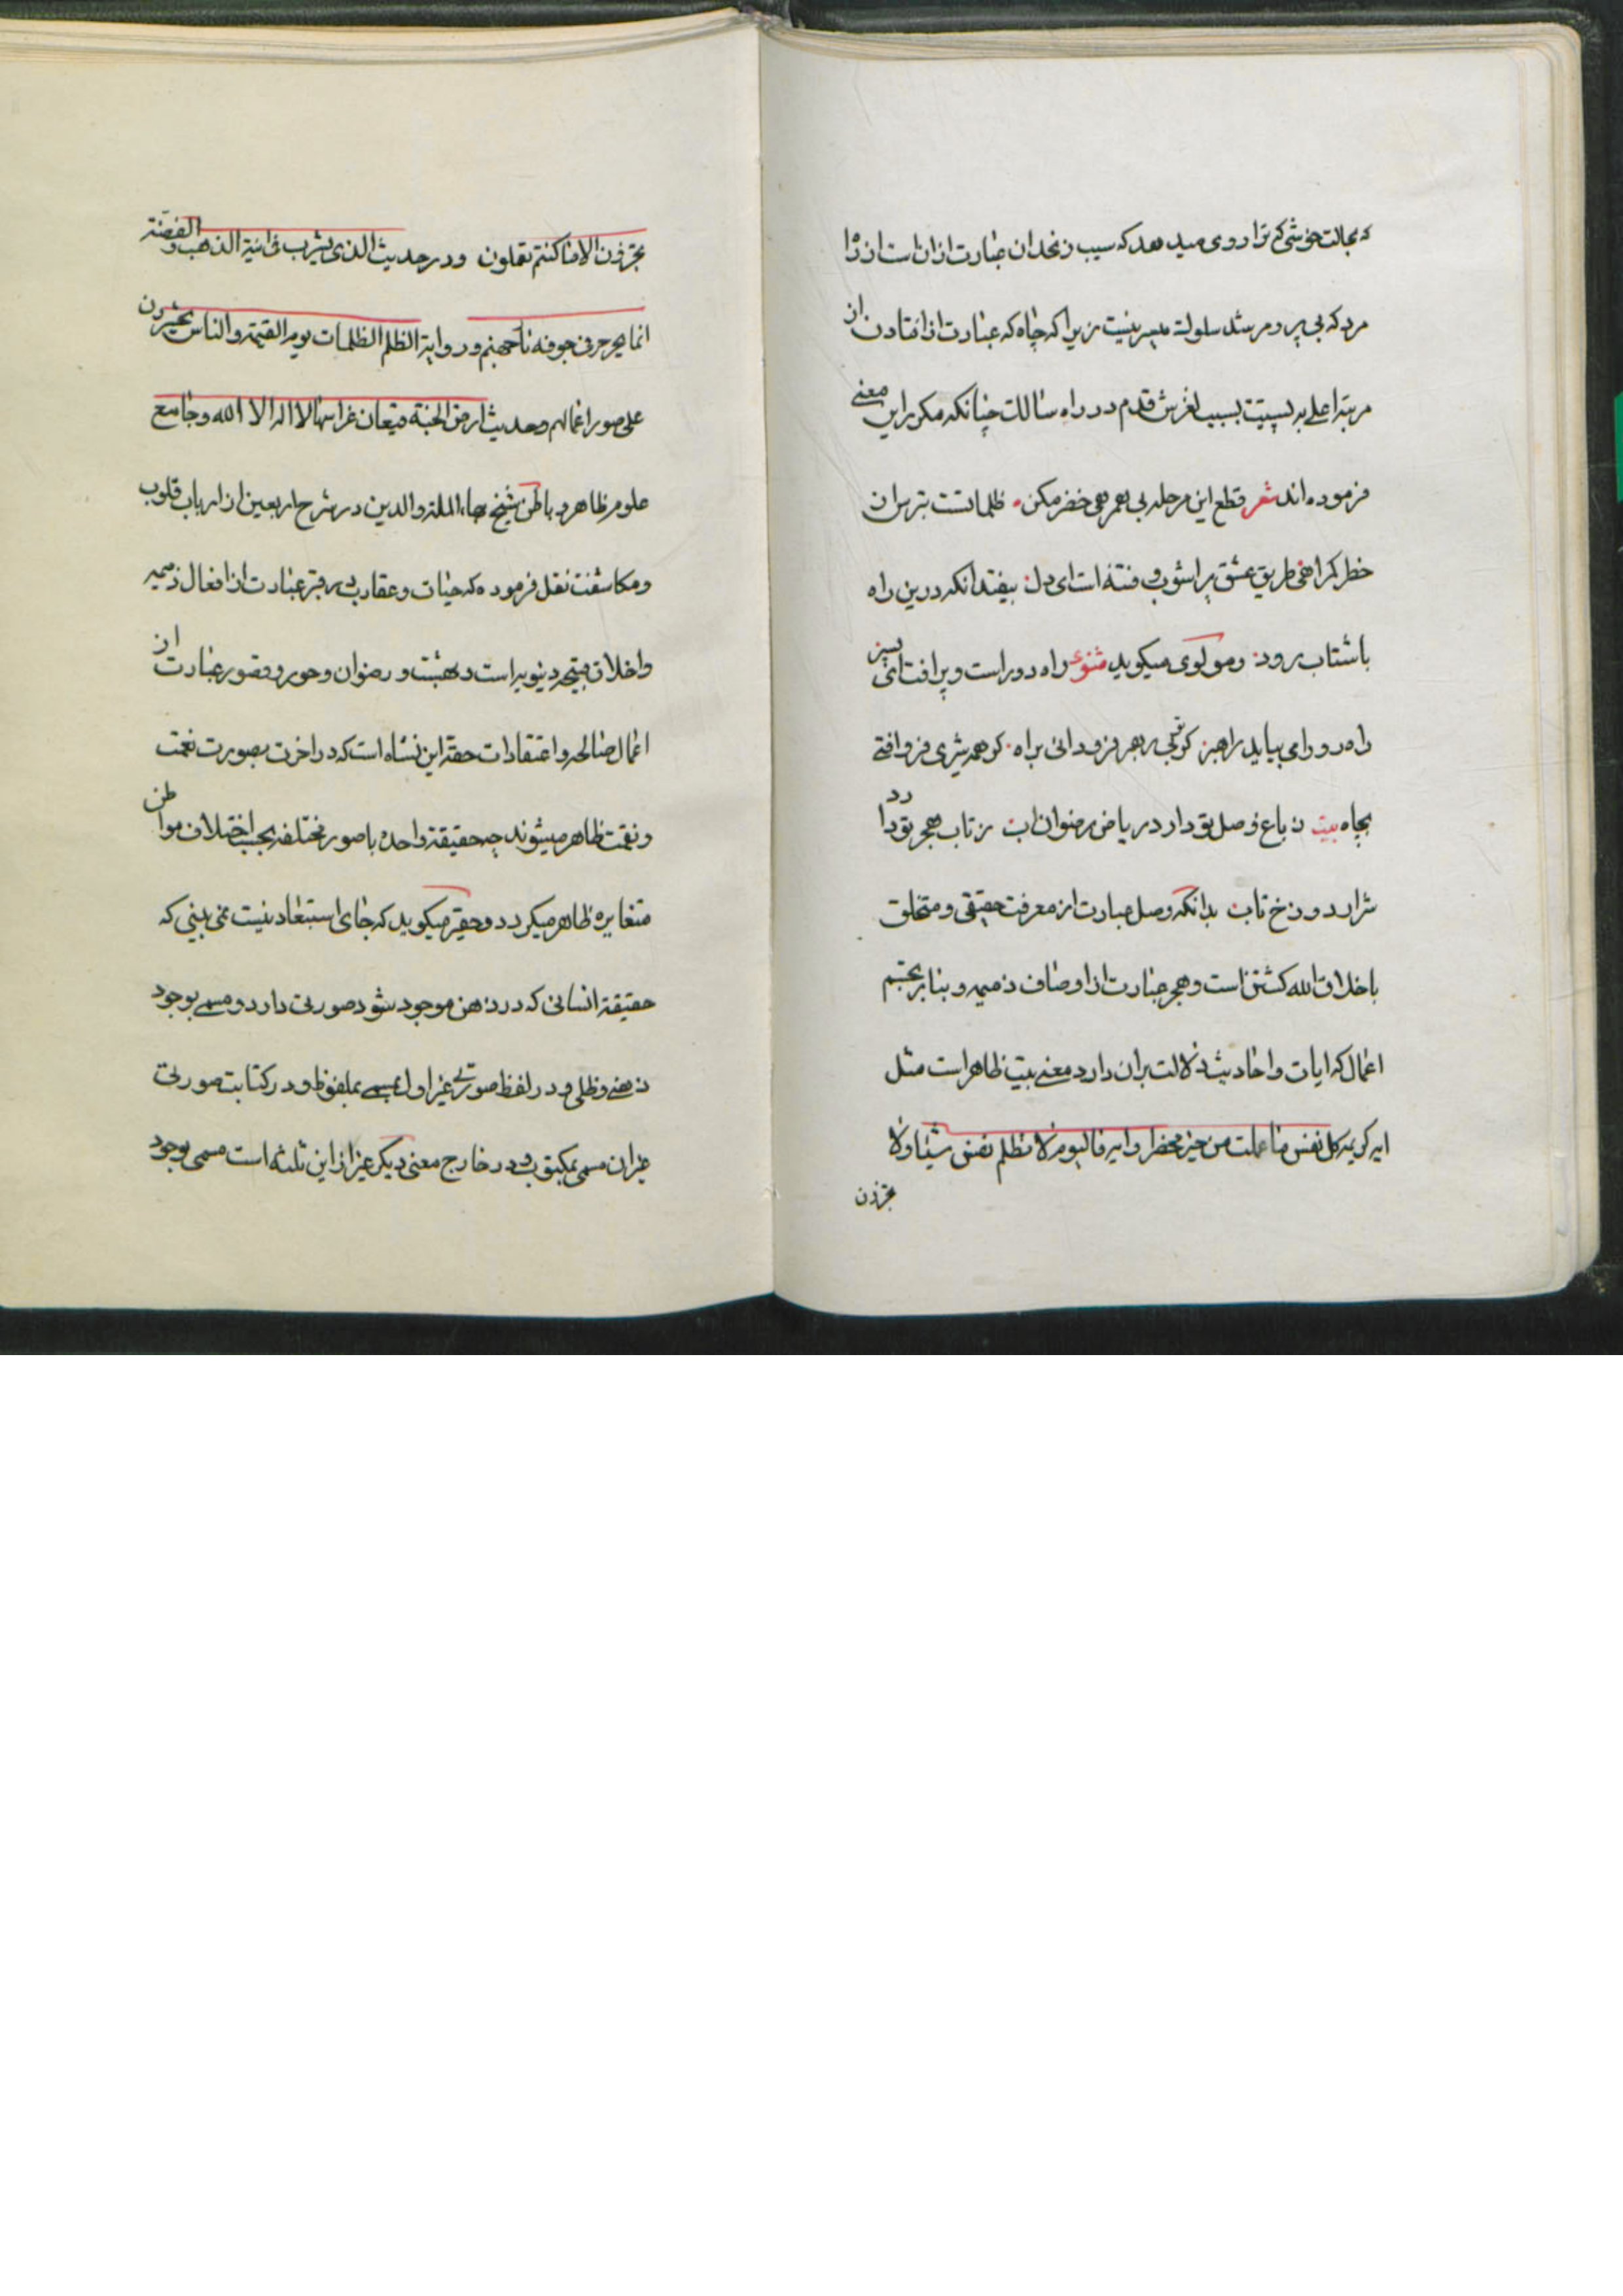 که بحالت خوشی که ترا روی میدهد که سیب زنخدان عبارت از ان است از راه
مرو که بی پیر و مرشد سلوک میسر نیست زیرا که چاه که عبارت از افتادن از
مرتبه اعلی به پستیست بسبب لغزش قدم در راه سالک چنانکه مکرر این معنی
فرموده اند شعر قطع این مرحله بی همرهی خضر مکن ظلماتست بترس از
خطر کمراهی طریق عشق پر اشوب و فتنه است ای دل بیفتد انکه درین راه
با شتاب رود و مولوی میکوید مثنوی راه دور است و پر افت ای پسر
راه رو را می بباید راهبر کر تو بی رهبر فرود ائی براه کر همه شیری فرو افتی
بچاه بیت ز باغ وصل تو دارد ریاض رضوان اب ز تاب هجر تو دارد
شرار دوزخ تاب بدانکه وصل عبارت از معرفت حقیقی و متخلق
باخلاق الله کشتن است و هجر عبارت از اوصاف ذمیمه و بنا بر تجسم
اعمال که ایات و احادیث دلالت بران دارد معنی بیت ظاهر است مثل
ایه کریمه کل نفس ما عملت من خیر محضرا و ایه فالیوم لا تظلم نفس شیئا ولا
تجزون
تجزون الا ما کنتم تعملون و در حدیث الذی یشرب فی انیة الذهب و الفضة
انما یجرجر فی جوفه نار جهنم و روایة الظلم الظلمات یوم القیمة و الناس یحشرون
علی صور اعمالهم و حدیث ارض الجنة قیعان غراسها لا اله الا الله و جامع
علوم ظاهر و باطن شیخ بهاء الملة والدین در شرح اربعین از ارباب قلوب
و مکاشفت نقل فرموده که حیات و عقارب قبر عبارت از افعال ذمیمه
و اخلاق قبیحه دنیویه است و بهشت و رضوان و حور و قصور عبارت از
اعمال صالحه و اعتقادات حقه این نشاه است که در اخرت بصورت نعمت
و نقمت ظاهر میشوند چه حقیقة واحده با صور مختلفه بحسب اختلاف مواطن
متغایره ظاهر میکردد و حقیر میکوید که جای استبعاد نیست نمی بینی که
حقیقة انسانی که در ذهن موجود شود صورتی دارد و مسمی بوجود
ذهنی و ظلی و در لفظ صورتی غیر اول مسمی بملفوظ و در کتابت صورتی
غیر ان مسمی بمکتوب و در خارج معنی دیکر غیر از این ثلثه است مسمی بوجود